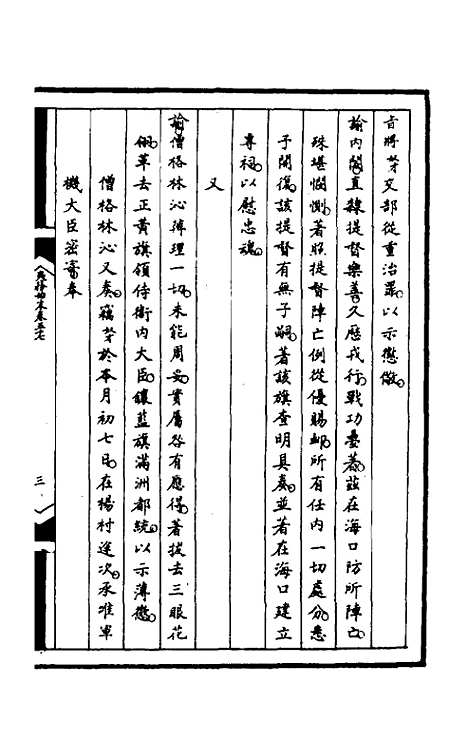 旨將芽交部從重治罪。以示懲儆。
諭內閣。直隸提督樂善。久歷戎行。戰功疊著。茲在海口防所陣亡。
殊堪憫惻。著照提督陣亡例從優賜䘏。所有任內一切處分。悉
予開復。該提督有無子嗣。著該旗查明具奏。並著在海口建立
專祠。以慰忠魂。
又
諭僧格林沁辦理一切。未能周妥。實屬咎有應得。著拔去三眼花
翎。革去正黃旗領侍衛內大臣。鑲藍旗滿洲都統。以示薄懲。
僧格林沁又奏。竊芽於本月初七日。在楊村途次。承准軍
機大臣密寄。奉
夷務始末卷五七
三